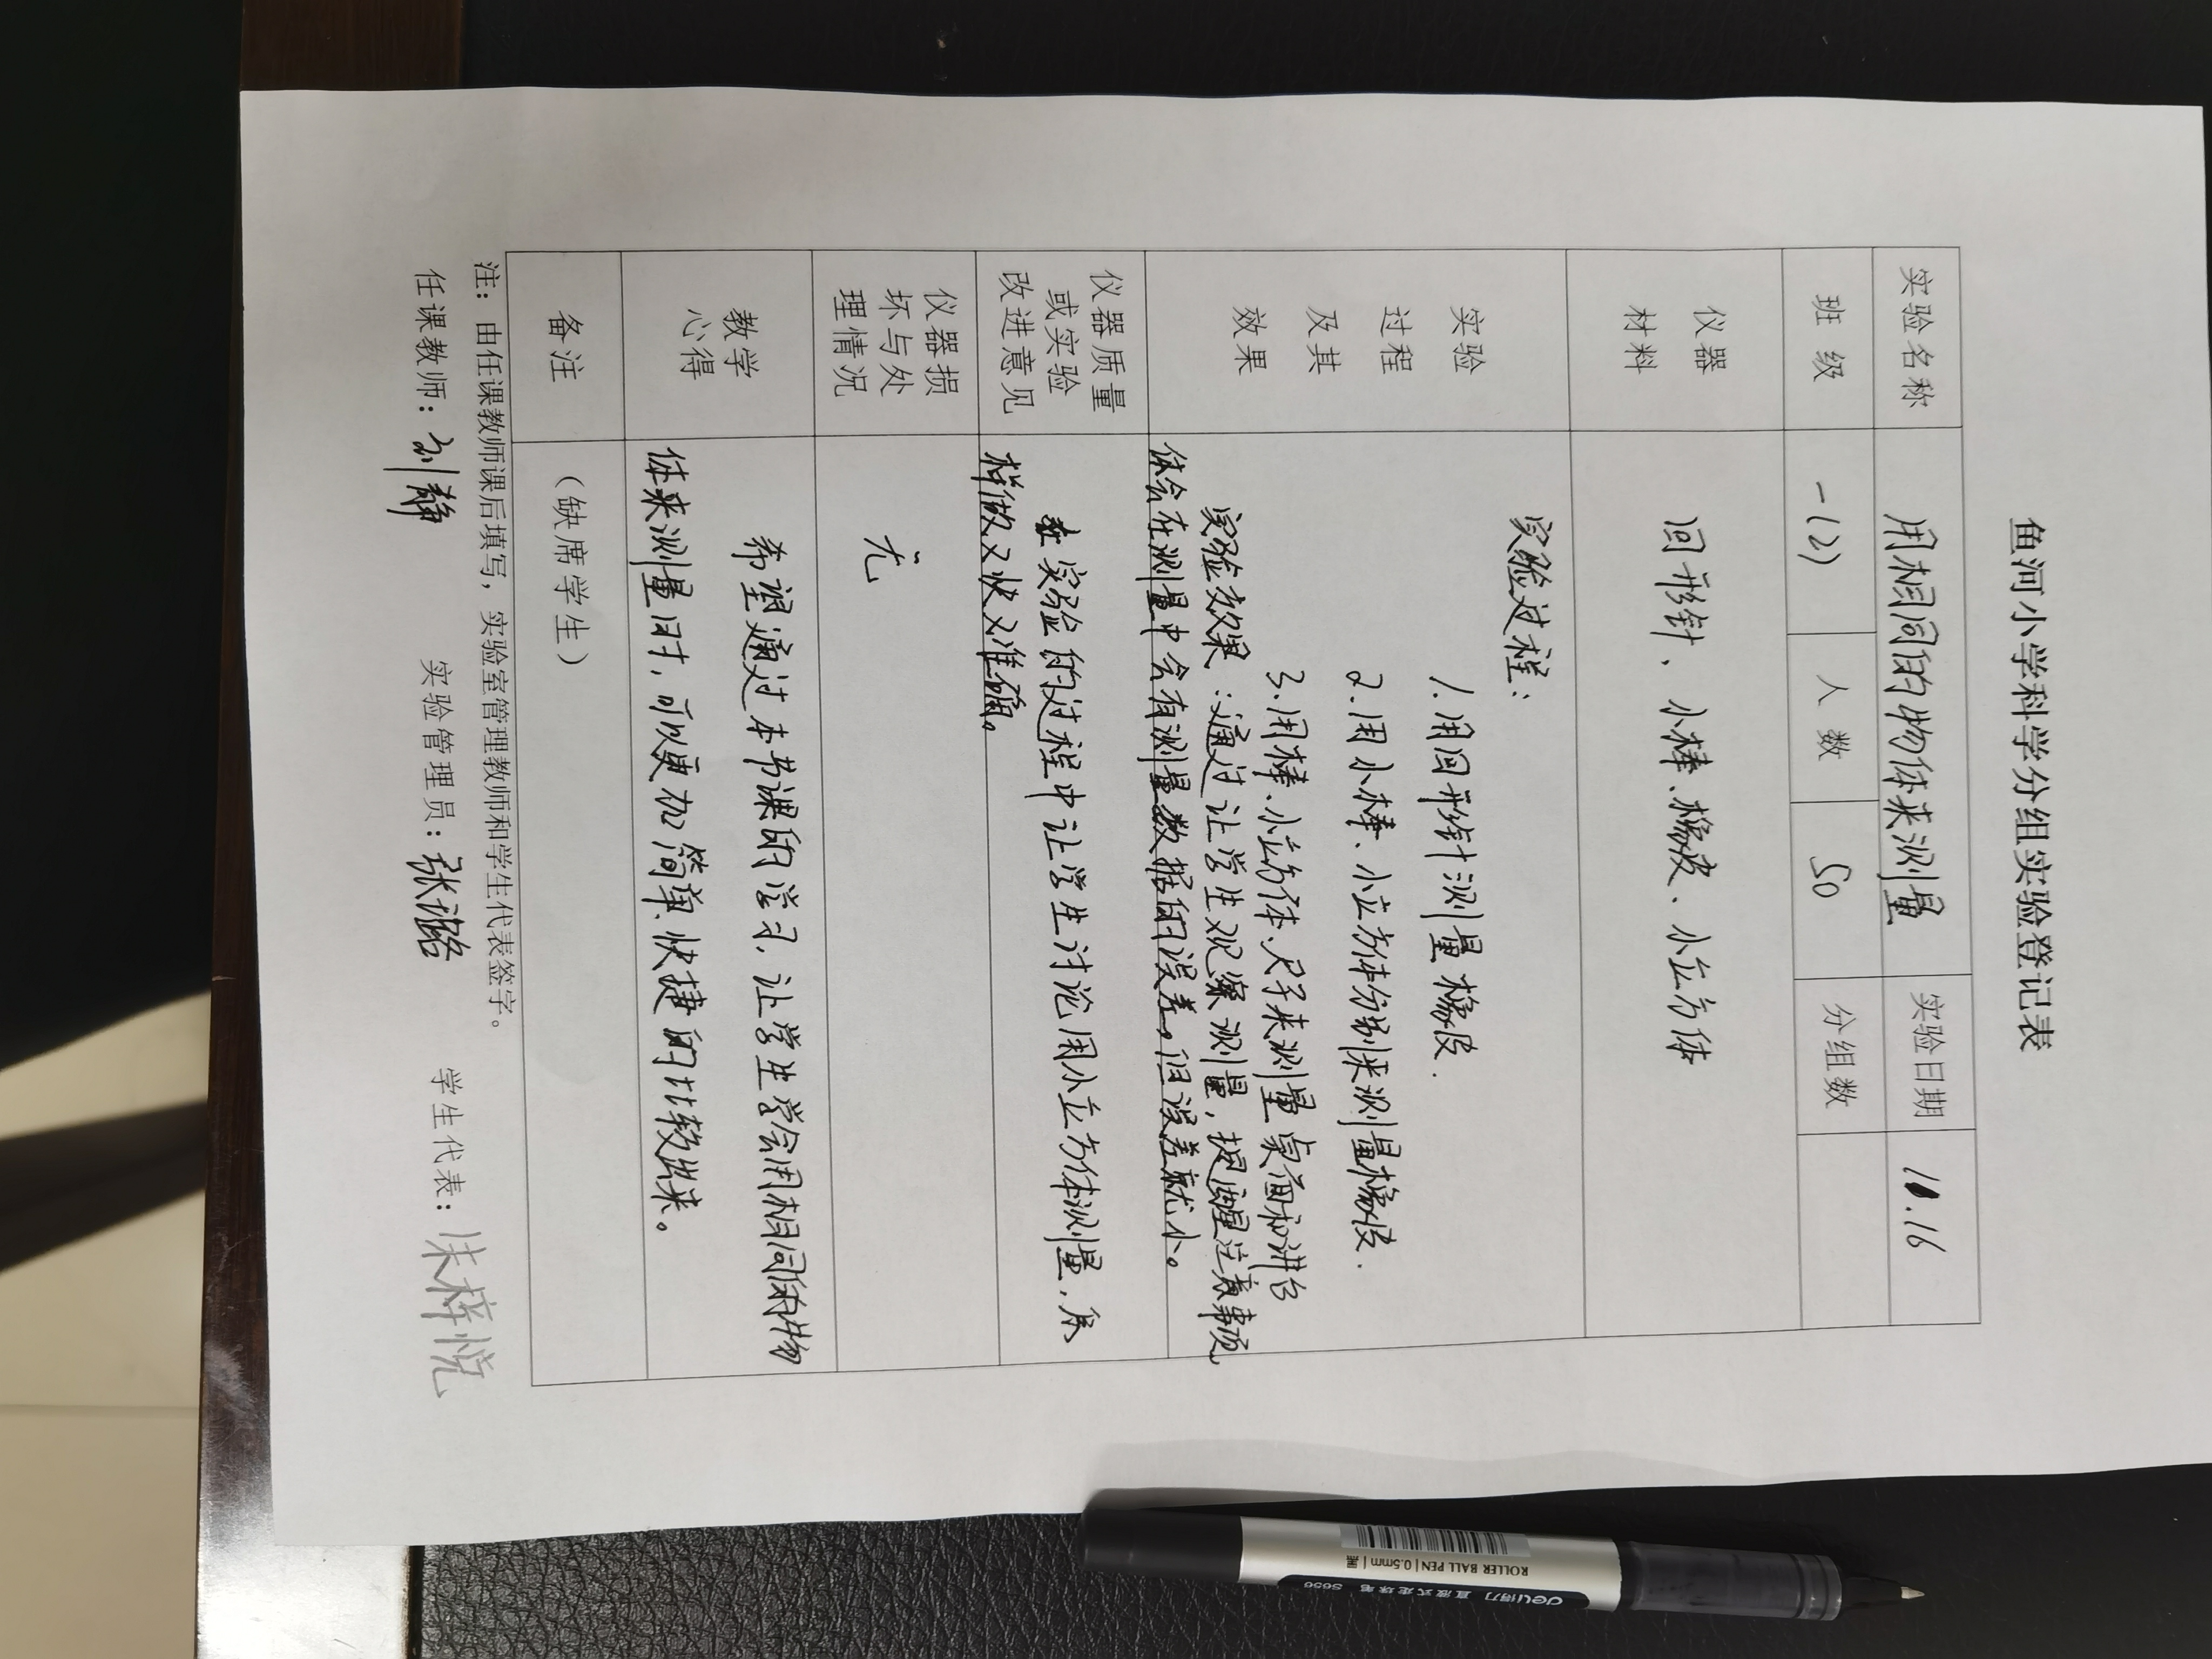 鱼河小学科学分组实验登记表
实验名称 用相同的物体来测量 实验日期 11.16
班 级 一(2) 人 数 50 分组数
仪器
材料
回形针、小棒、橡皮、小立方体
实验
过程
及其
效果
实验过程:
1.用回形针测量橡皮.
2.用小棒、小立方体分别来测量橡皮.
3.用棒、小立方体、尺子来测量桌面和讲台
实验效果:通过让学生观察测量,提醒注意事项,
体会在测量中会有测量数据的误差,但误差就小。
仪器质量
或实验
改进意见
在实验的过程中让学生讨论用小立方体测量,怎
样做又快又准确。
仪器损
坏与处
理情况
无
教学
心得
希望通过本节课的学习,让学生学会用相同的物
体来测量时,可以更加简单、快捷的比较出来。
备注
(缺席学生)
注:由任课教师课后填写,实验室管理教师和学生代表签字。
任课教师:刘静 实验管理员:张潞 学生代表:朱梓悦
deli得力 直液式走珠笔 S656
ROLLER BALL PEN | 0.5mm | 黑